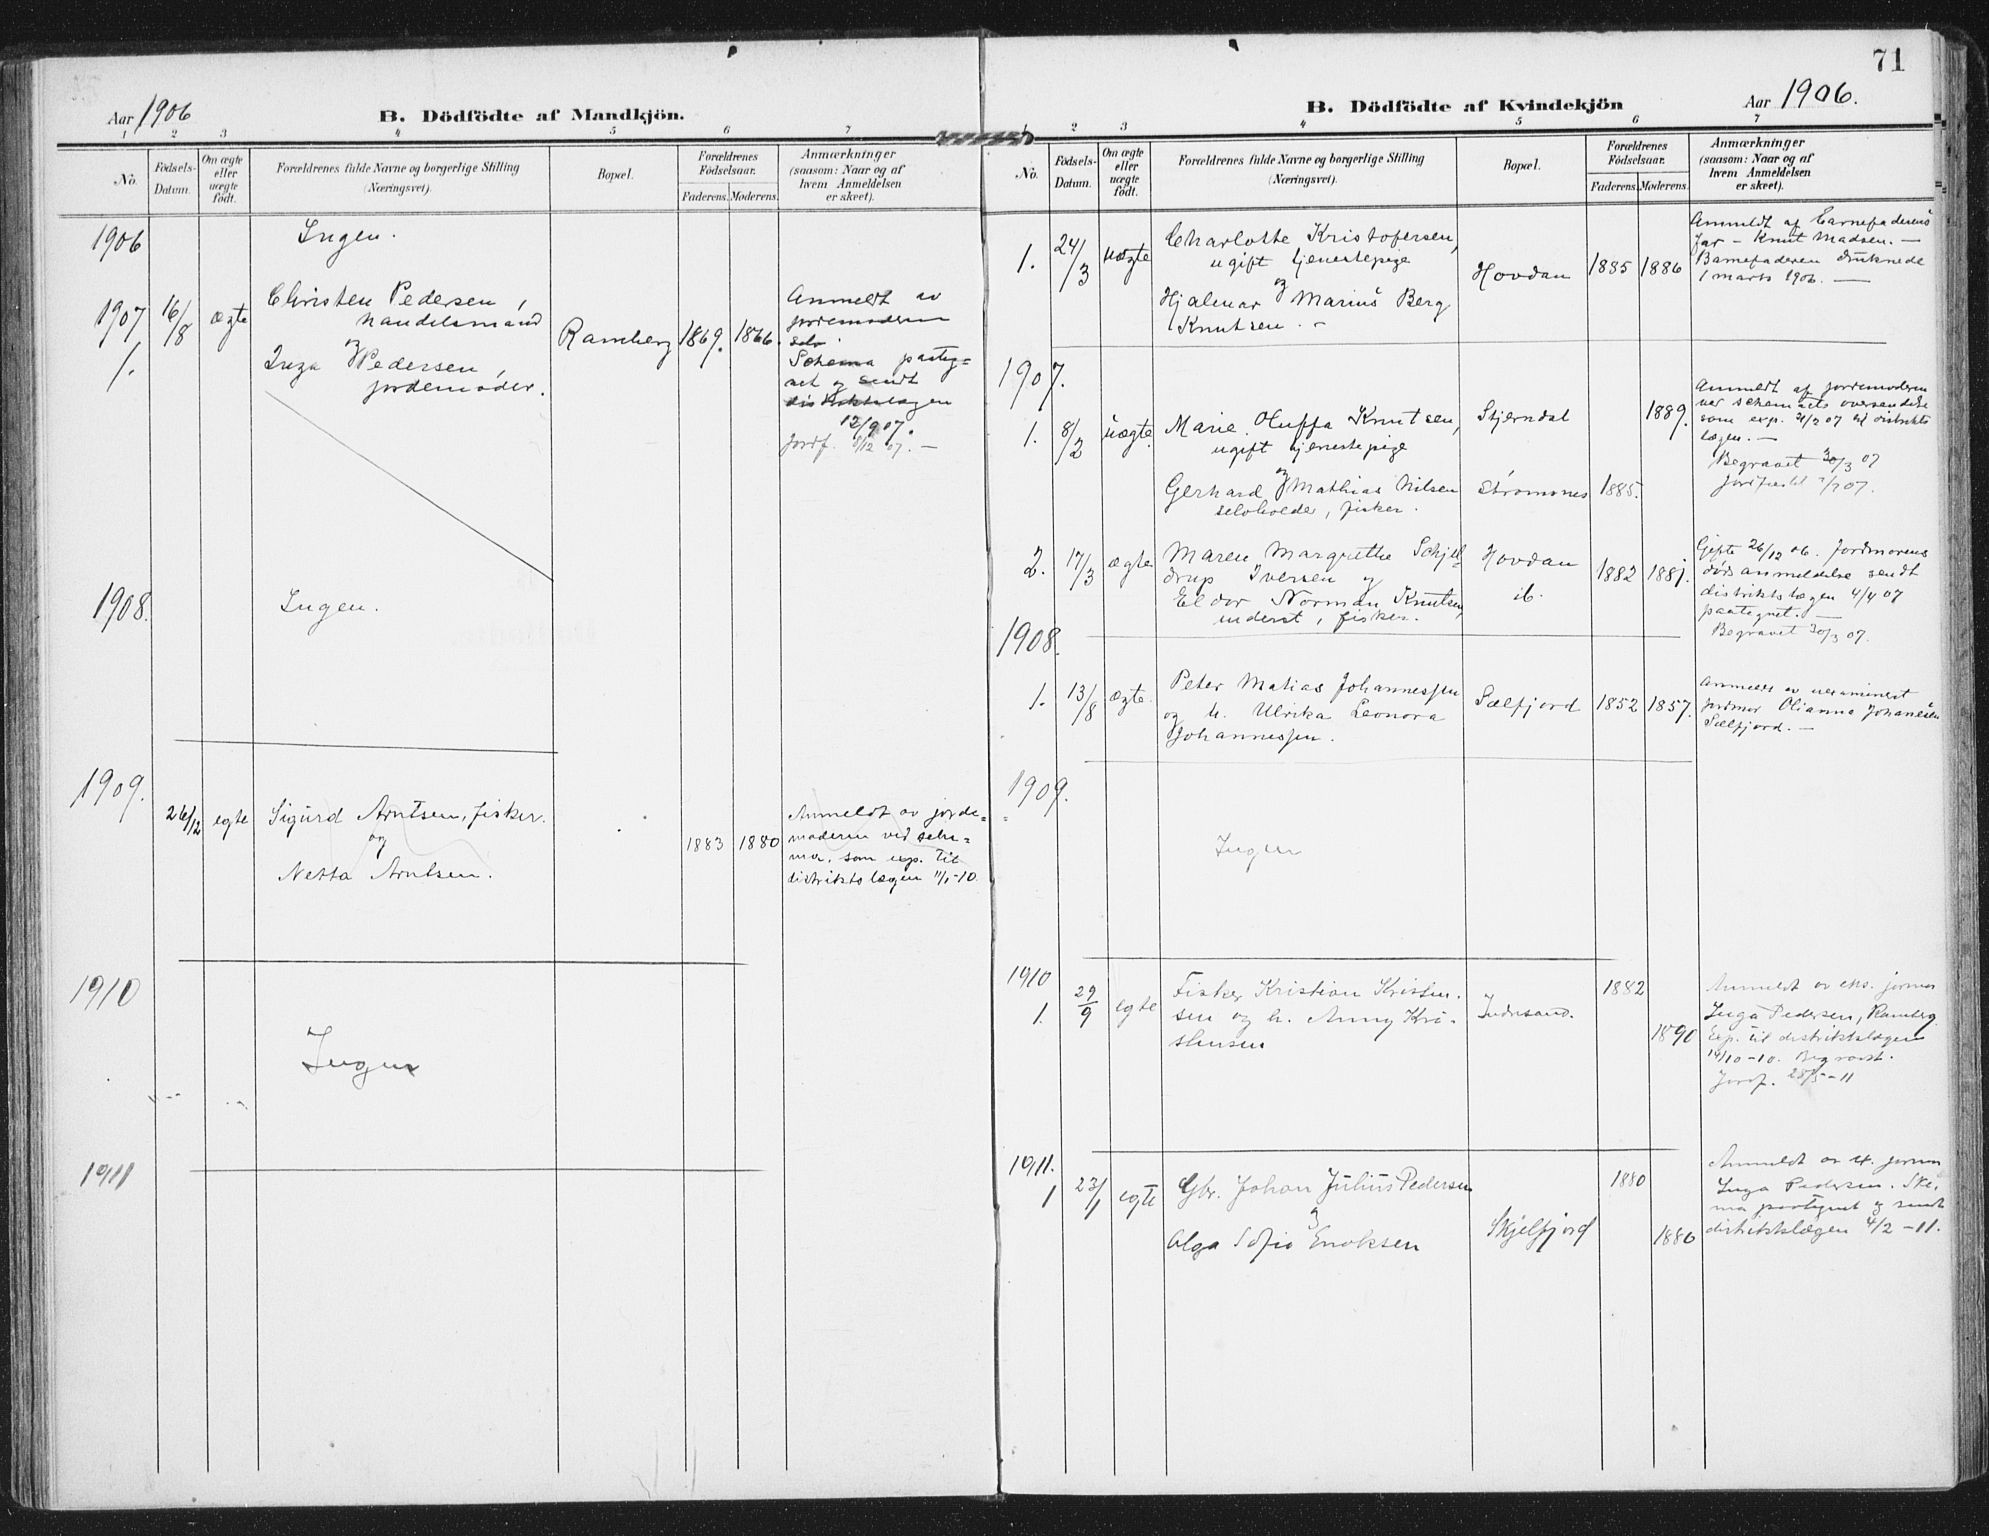 Aar 1906
B. Dödfödte af Mandkjön.
1 2 3 4 5 6 7
No.
Födsels-Datum.
Om ægte eller uægte födt.
Forældrenes fulde Navne og borgerlige Stilling (Næringsvei).
Bopæl.
Forældrenes Födselsaar.
Faderens. Moderens.
Anmærkninger (saasom: Naar og af hvem Anmeldelsen er skeet).
1906
Ingen.
1907
1.
16/8
ægte
Christen Pedersen,
handelsmand
og
Inga Pedersen,
jordemoder.
Ramberg
1869.
1866.
Anmeldt av
jordemoderen
selv.
Schema paateg=
net og sendt
distriktslægen
12/9 07.
Jordf. 8/12 07. —
1908.
Ingen.
1909.
26/12
egte
Sigurd Arntsen, fisker.
og
Netta Arntsen.
1883
1880
Anmeldt av jorde=
moderen ved sche=
ma, som exp. til
distriktslægen 11/1-10.
1910
Ingen
1911
71
B. Dödfödte af Kvindekjön
Aar 1906.
1 2 3 4 5 6 7
No.
Födsels-Datum.
Om ægte eller uægte födt.
Forældrenes fulde Navne og borgerlige Stilling (Næringsvei).
Bopæl.
Forældrenes Födselsaar.
Faderens. Moderens.
Anmærkninger (saasom: Naar og af hvem Anmeldelsen er skeet).
1.
24/3
uægte
Charlotte Kristofersen,
ugift tjenestepige
og
Hjalmar Marius Berg
Knutsen. -
Hovdan
1885
1886
Anmeldt af Barnefaderens
far — Knut Madsen. —
Barnefaderen druknede
1 marts 1906. —
1907.
1.
8/2
uægte
Marie Oluffa Knutsen,
ugift tjenestepige
og
Gerhard Mathias Nilsen
selvholder, fisker.
Stjerndal
Strømsnes
1885.
1889.
Anmeldt af jordemoderen
ved schemaets oversendelse
som exp. 21/2 07 til distrikts
lægen. —
Begravet 30/3 07
2.
17/3
ægte
Maren Margrethe Schjel-
drup Iversen og
Eldor Norman Knutsen,
inderst, fisker.
Hovdan
ib.
1882
1881.
Gifte 26/12 06. Jordmorens
dødsanmeldelse sendt
distriktslægen 4/4 07
paategnet. —
Begravet 30/3 07.
1908.
1.
13/8
ægte
Peter Matias Johannessen
og h. Ulrika Leonora
Johannessen.
Sælfjord
1852
1857.
Anmeldt av uexamineret
jordmor Olianna Johanesen
Sælfjord. —
1909.
Ingen
1910
1.
29/9
egte
Fisker Kristian Kristen-
sen og h. Anny Kri-
stensen
Indresand.
1882
1890
Anmeldt av eks. jormor
Inga Pedersen, Ramberg.
Exp. til distriktslægen
14/10-10. Begravet.
Jordf. 28/5-11
1911.
1
23/1
egte
Gbr. Johan Julius Pedersen
og
Alga Sofie Enoksen
Skjelfjord
1880
1886
Anmeldt av ex. jormor
Inga Pedersen. Ske-
ma paategnet og sendt
distriktslægen 4/2-11.